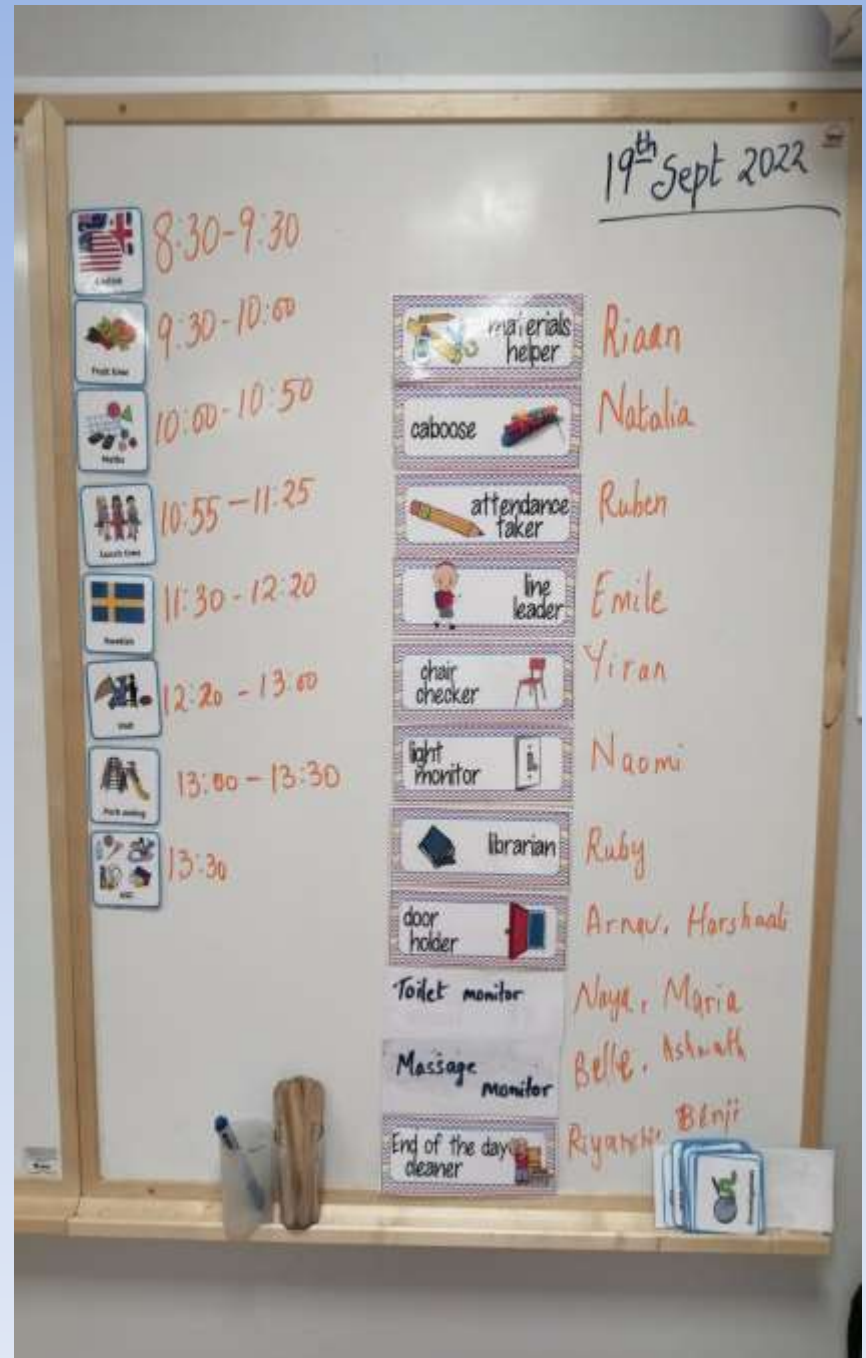 19th Sept 2022
English 8:30-9:30
Fruit time 9:30-10:00
Maths 10:00-10:50
Lunch time 10:55-11:25
Swedish 11:30-12:20
Unit 12:20-13:00
13:00-13:30
13:30
materials helper Riaan
caboose Natalia
attendance taker Ruben
line leader Emile
chair checker Yiran
light monitor Naomi
librarian Ruby
door holder Arnav, Harshaali
Toilet monitor Naya, Maria
Massage monitor Belle, Ashwath
End of the day cleaner Benji